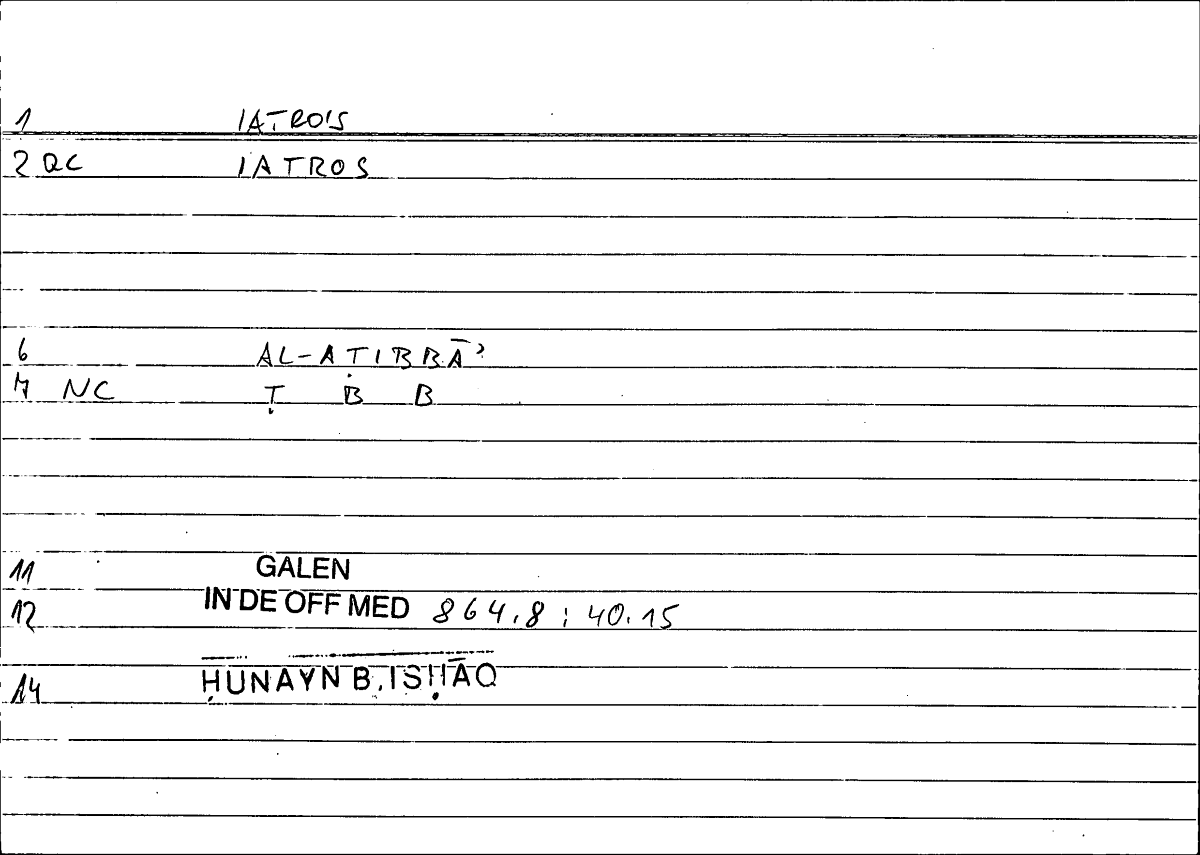 1 IATROIS
2 QC IATROS
6 AL-AṬIBBĀʾ
7 NC Ṭ B B
11 GALEN
12 IN DE OFF MED 864.8 ; 40.15
14 ḤUNAYN B. ISḤĀQ